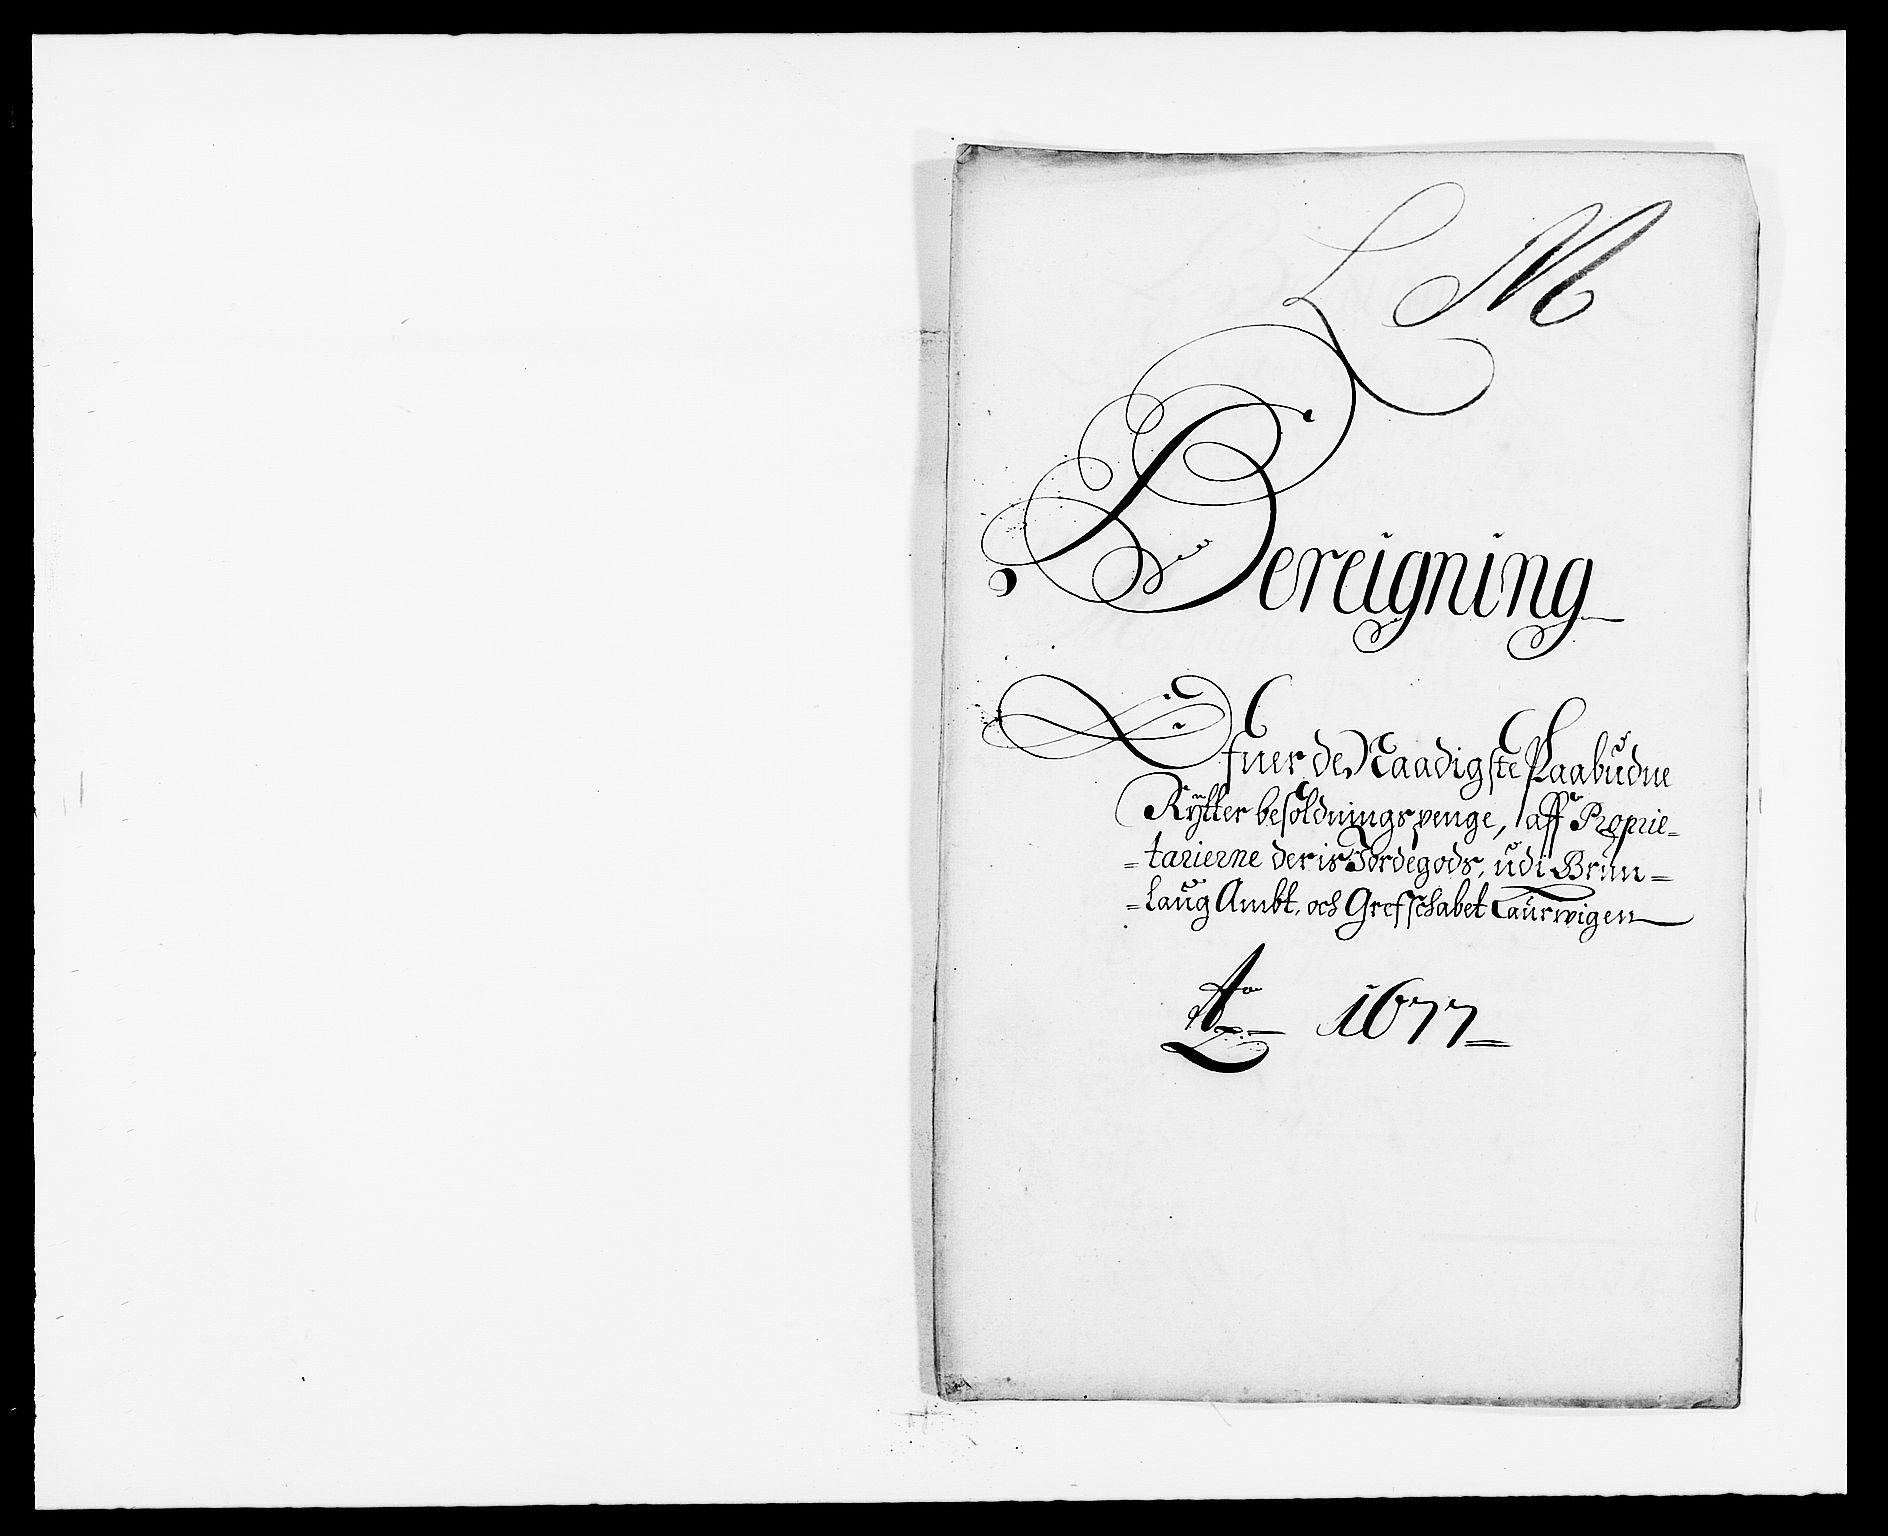 L M
Bereigning
Ofuer de Naadigste Paabudne
Rytter besoldnings penge, aff Proprie=
=tarierne deris Jordegods, udi Brun=
=laug Ambt. och Grefschabet Laurwigen
Ao 1677